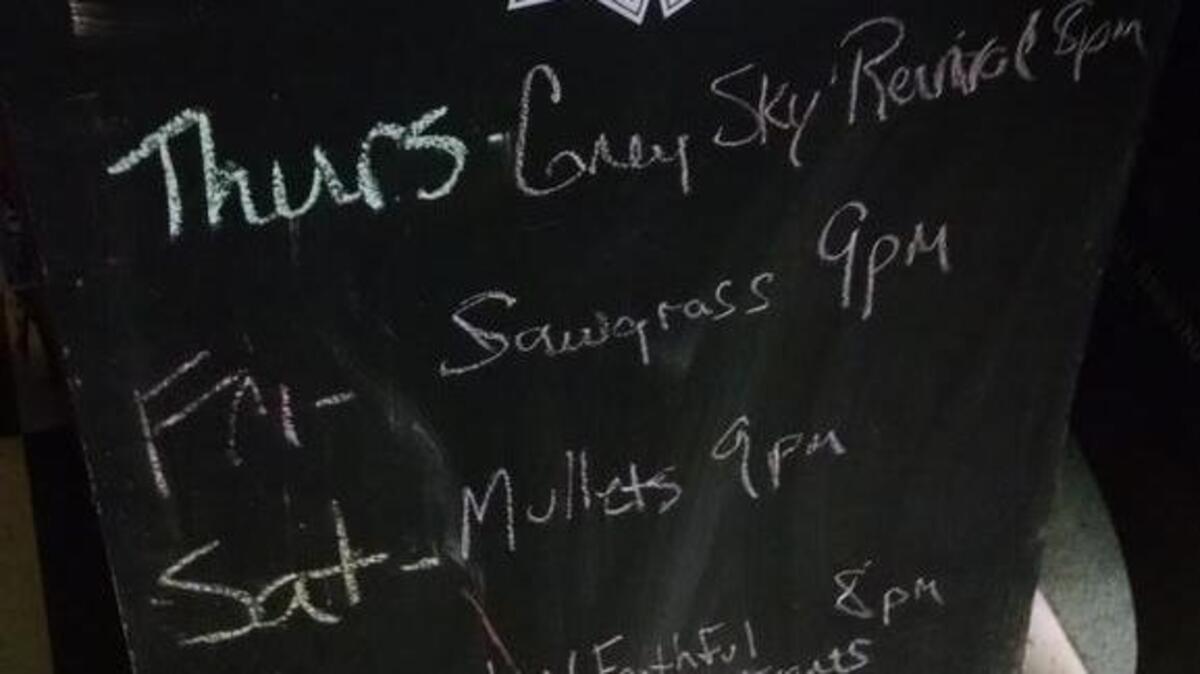 Thurs - Grey Sky Revival 8pm
Fri - Sawgrass 9pm
Sat - Mullets 9pm
Faithful 8pm